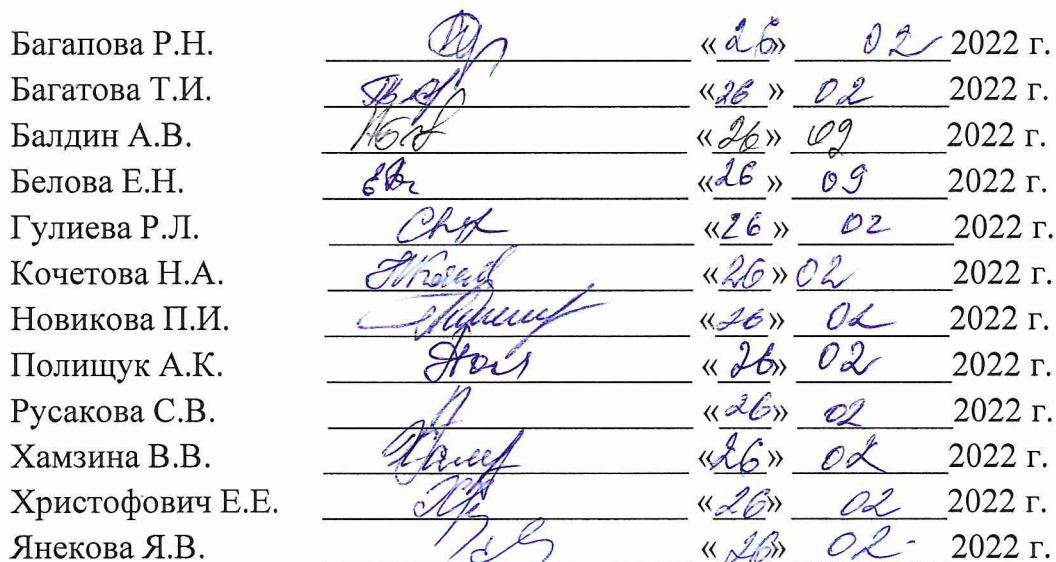 Багапова Р.Н. «26» 02 2022 г.
Багатова Т.И. «26» 02 2022 г.
Балдин А.В. «26» 02 2022 г.
Белова Е.Н. «26» 09 2022 г.
Гулиева Р.Л. «26» 02 2022 г.
Кочетова Н.А. «26» 02 2022 г.
Новикова П.И. «26» 02 2022 г.
Полищук А.К. «26» 02 2022 г.
Русакова С.В. «26» 02 2022 г.
Хамзина В.В. «26» 02 2022 г.
Христофович Е.Е. «26» 02 2022 г.
Янекова Я.В. «26» 02 2022 г.